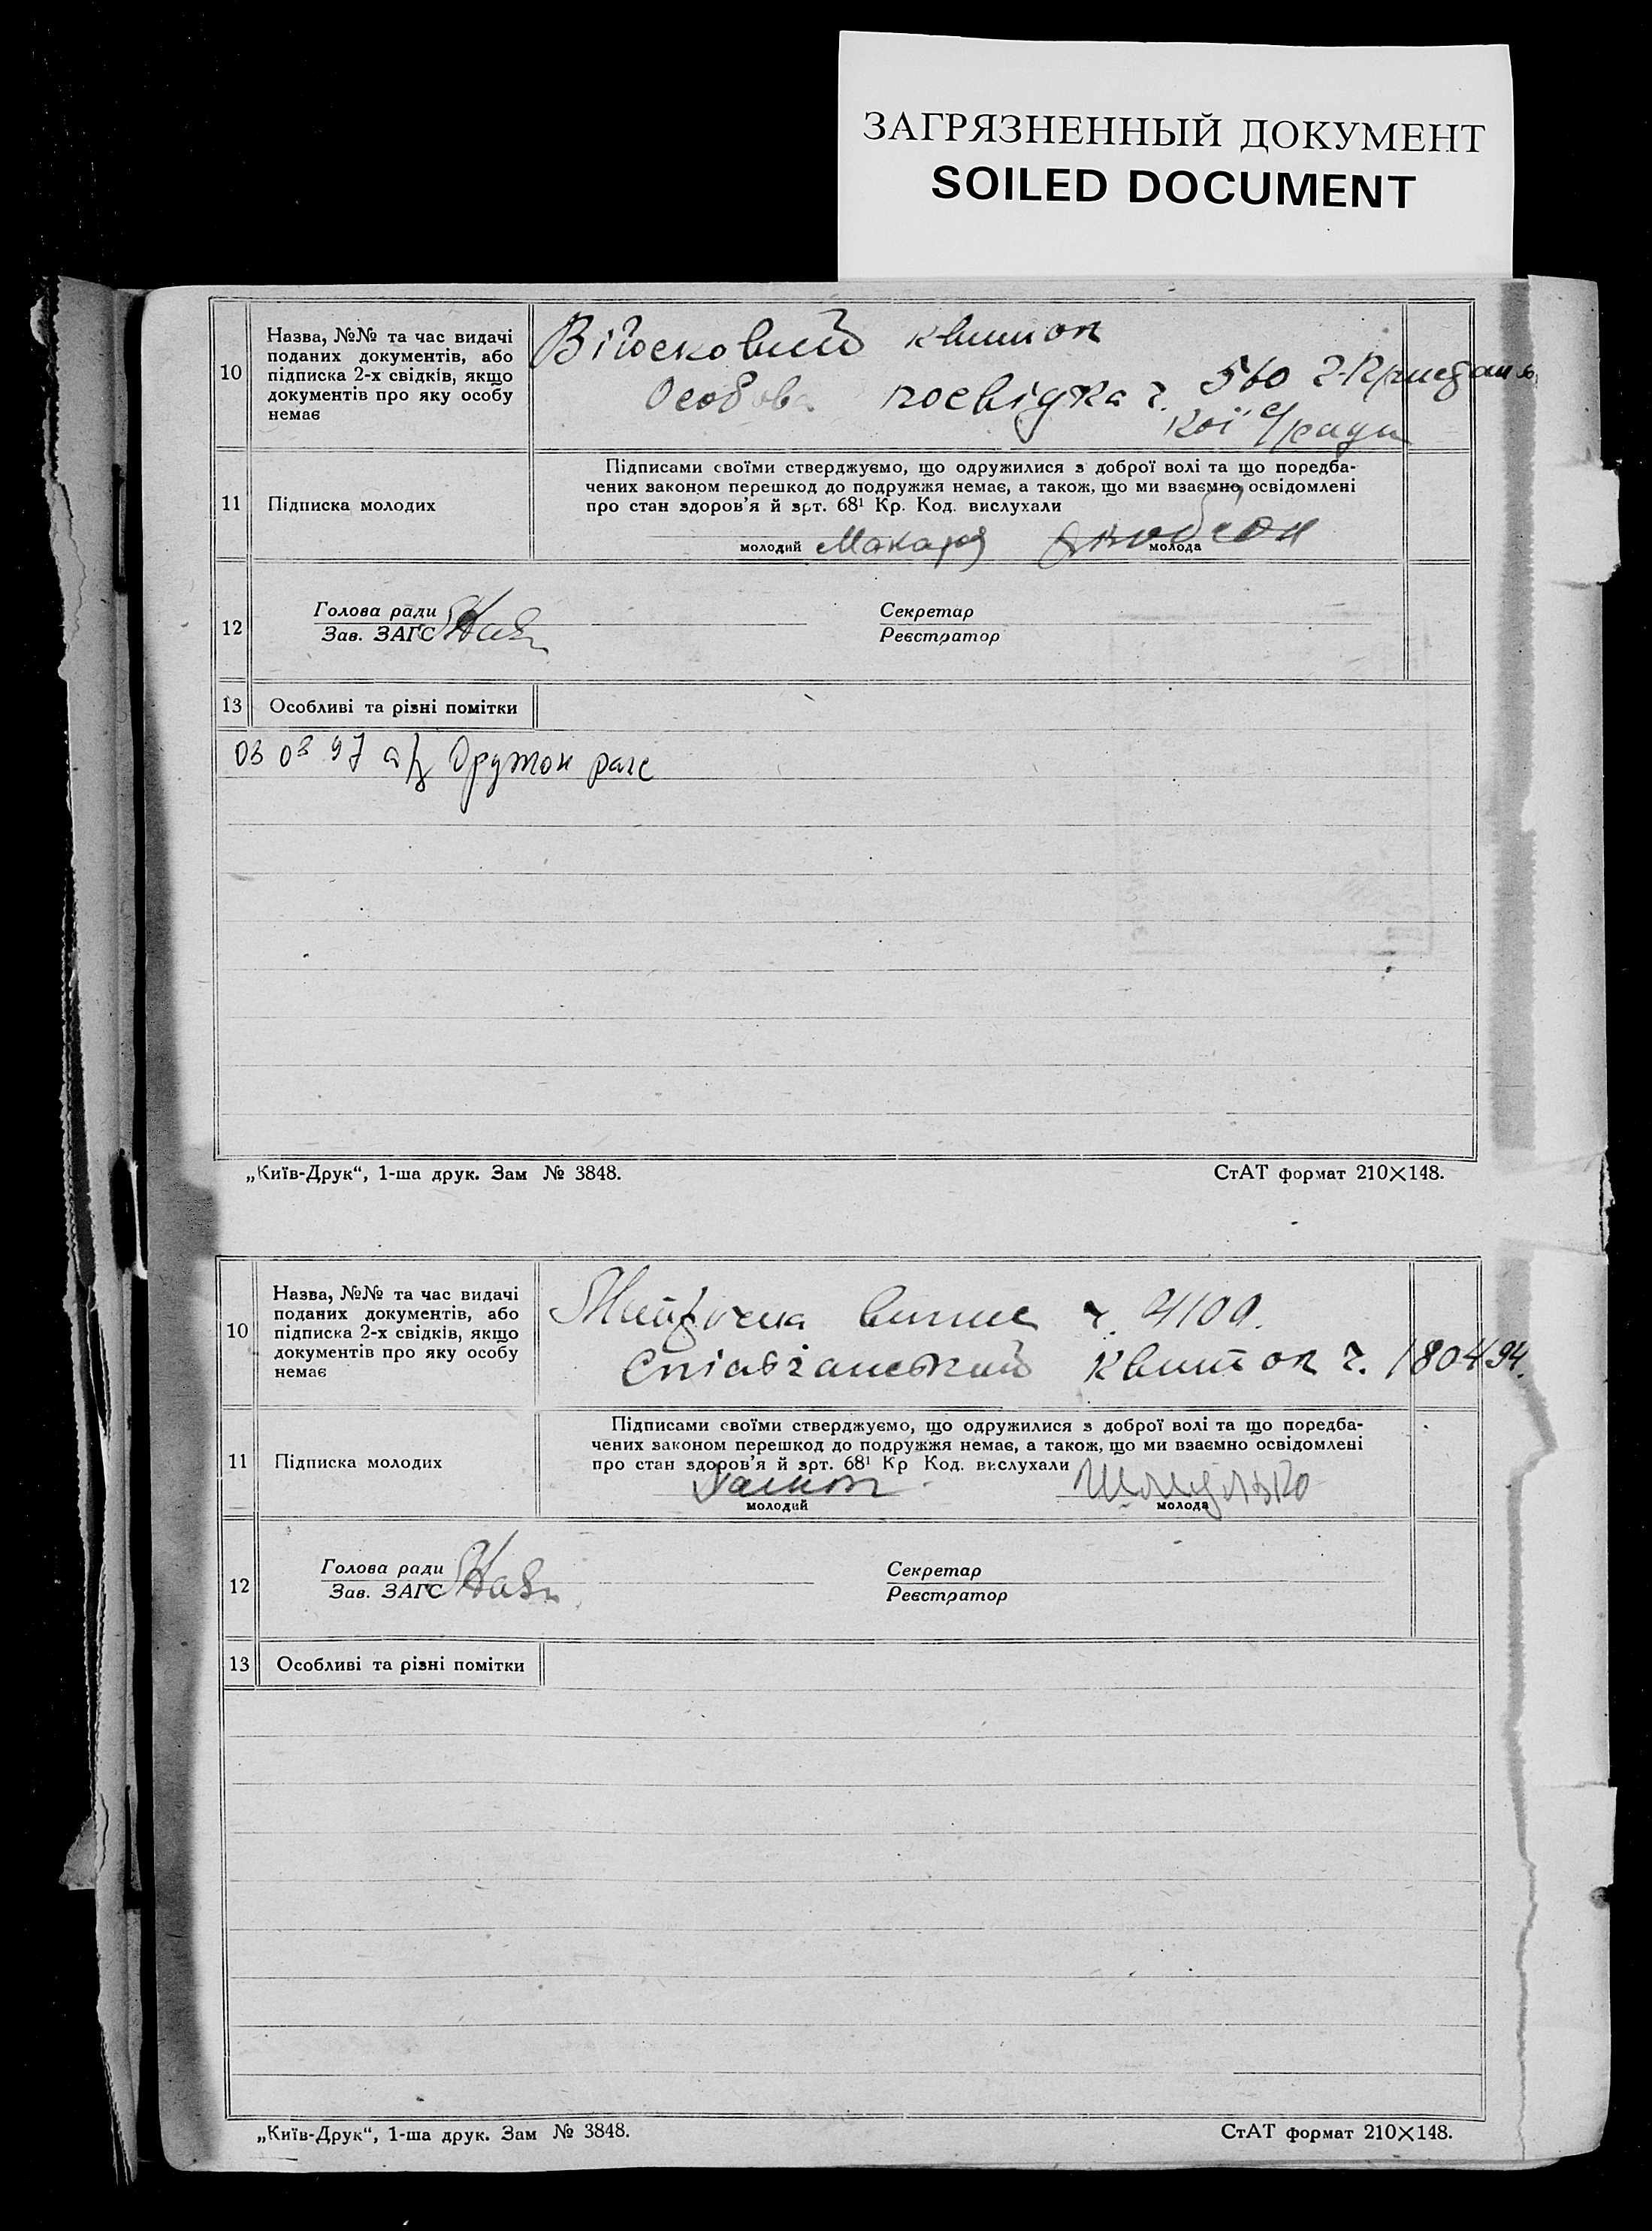 ЗАГРЯЗНЕННЫЙ ДОКУМЕНТ
SOILED DOCUMENT
10
Назва, №№ та час видачі
поданих документів, або
підписка 2-х свідків, якщо
документів про яку особу
немає
Військовий квиток
Особова посвідка ч. 560
кої с/ради
11
Підписка молодих
Підписами своїми стверджуємо, що одружилися з доброї волі та що поредба-
чених законом перешкод до подружжя немає, а також, що ми взаємно освідомлені
про стан здоров'я й зрт. 68¹ Кр. Код. вислухали
молодий Макара молода
12
Голова ради
Зав. ЗАГС
Секретар
Реєстратор
13
Особливі та різні помітки
03 03 97
„Київ-Друк“, 1-ша друк. Зам № 3848.
СтАТ формат 210×148.
10
Назва, №№ та час видачі
поданих документів, або
підписка 2-х свідків, якщо
документів про яку особу
немає
ч. 4100.
квиток ч. 180494.
11
Підписка молодих
Підписами своїми стверджуємо, що одружилися з доброї волі та що поредба-
чених законом перешкод до подружжя немає, а також, що ми взаємно освідомлені
про стан здоров'я й зрт. 68¹ Кр Код. вислухали
молодий молода
12
Голова ради
Зав. ЗАГС
Секретар
Реєстратор
13
Особливі та різні помітки
„Київ-Друк“, 1-ша друк. Зам № 3848.
СтАТ формат 210×148.